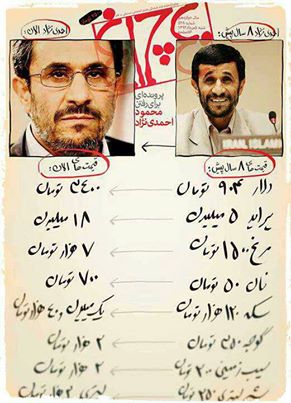 احمدی نژاد ۸ سال پیش:
احمدی نژاد الان:
همشهری
پرونده‌ای
برای رفتن
محمود
احمدی‌نژاد
IRAN, ISLAMI
قیمت های ۸ سال پیش:
قیمت های الان:
دلار ۹۰۴ تومان ← ۳۴۰۰ تومان
پراید ۵ میلیون ← ۱۸ میلیون
مرغ ۱۵۰۰ تومان ← ۷ هزار تومان
نان ۵۰ تومان ← ۷۰۰ تومان
سکه ۱۲۰ هزار تومان ← یک میلیون و ۴۰ هزار تومان
گوجه ۳۵۰ تومان ← ۲ هزار تومان
سیب زمینی ۲۰۰ تومان ← ۲ هزار تومان
شیر لیتری ۲۵۰ تومان ← لیتری ۳ هزار تومان